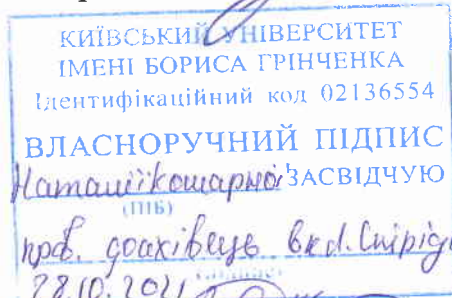 КИЇВСЬКИЙ УНІВЕРСИТЕТ
ІМЕНІ БОРИСА ГРІНЧЕНКА
Ідентифікаційний код 02136554
ВЛАСНОРУЧНИЙ ПІДПИС
Наталії Кошарної ЗАСВІДЧУЮ
(ПІБ)
пров. фахівець
28.10.2021